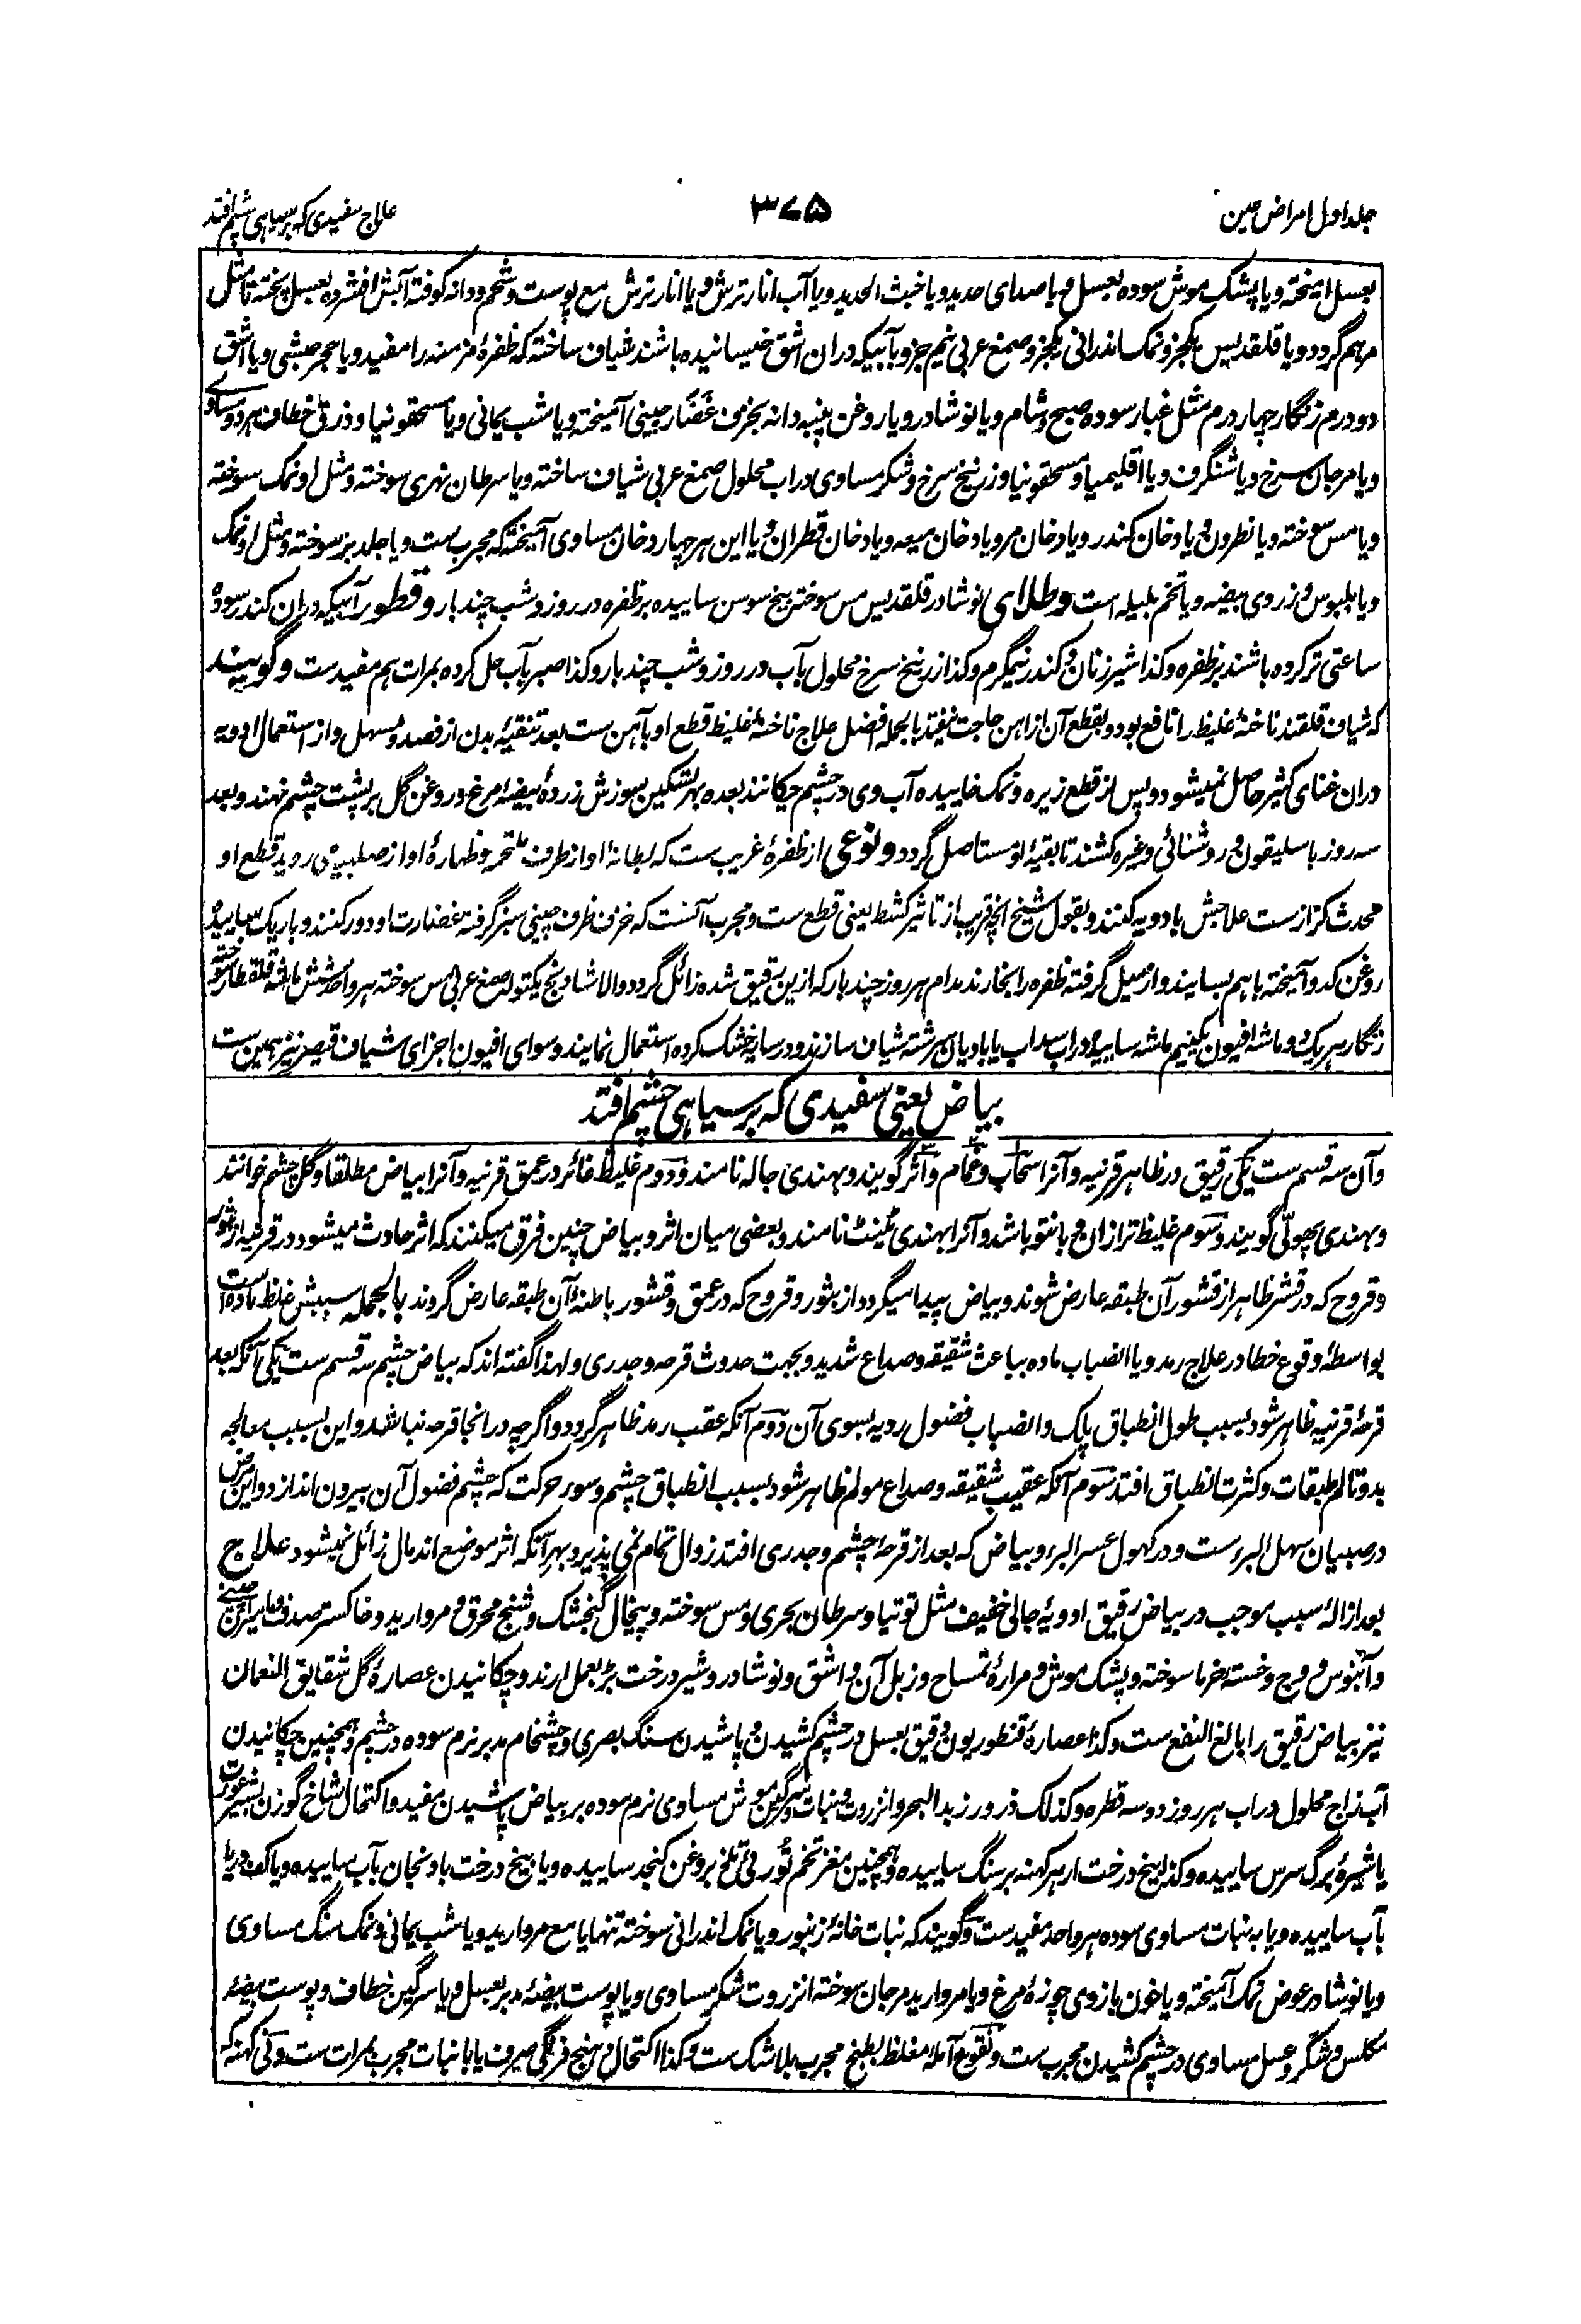 جلد اول امراض عین
۳۷۵
علاج سفیدی که بر سیاهی چشم افتد
بعسل آمیخته و یا پشک موش سوده بعسل و یا صدای حدید و یا خبث الحدید و یا آب انار ترش و یا انار ترش مع پوست و شحم و دانه کوفته آبش افشرده بعسل پخته تا مثل
مرهم گردد و یا قلقدیس یکجزو نمک اندرانی یکجزو صمغ عربی نیم جزو بآبیکه دران اشق خیسانیده باشند شیاف ساخته که ظفرۀ مزمنه را مفید و یا حجر حبشی و یا اشق
دو درم زنگار چهار درم مثل غبار سوده صبح و شام و یا نوشادر و یا روغن پنبه دانه بخزف غضار چینی آمیخته و یا شب یمانی و یا مسحقونیا و ذرق خطاف هر دو مساوی
و یا مرجان سرخ و یا شنگرف و یا اقلیمیا و مسحقونیا و زرنیخ سرخ و شکر مساوی دراب محلول صمغ عربی شیاف ساخته و یا سرطان نهری سوخته و مثل او نمک سوخته
و یا مس سوخته و یا نطرون و یا دخان کندر و یا دخان مر و یا دخان میعه و یا دخان قطران و یا این هر چهار دخان مساوی آمیخته که مجرب ست و یا جلد بز سوخته و مثل او نمک
و یا بلبوس و زردی بیضه و یا تخم بلیله است وطلای نوشادر قلقدیس مس سوخته بیخ سوسن ساییده بر ظفره در روز و شب چند بار و قطور آبیکه دران کندر سوده
ساعتی تر کرده باشند بر ظفره و کذا شیر زنان و کندر نیمگرم و کذا زرنیخ سرخ محلول بآب در روز و شب چند بار و کذا صبر بآب حل کرده بمرات هم مفید ست و گویند
که شیاف قلقند ناخنۀ غلیظ را نافع بود و بقطع آن از آهن حاجت نیفتد بالجمله افضل علاج ناخنۀ غلیظ قطع او بآهن ست بعد تنقیۀ بدن از فصد و مسهل و از استعمال ادویه
دران غنای کثیر حاصل نمیشود و پس از قطع زیره و نمک خاییده آب وی در چشم چکانند بعده بهر تسکین سوزش زردۀ بیضۀ مرغ و روغن گل بر پشت چشم نهند و بعد
سه روز باسلیقون و روشنائی و غیره کشند تا بقیۀ او مستاصل گردد و نوعی از ظفرۀ غریب ست که بطانۀ او از طرف ملتحمه و ظهارۀ او از صلبیه می روید قطع او
محدث کزاز ست علاجش بادویه کنند و بقول شیخ انچه قریب از تاثیر کشط یعنی قطع ست و مجرب آنست که خزف ظرف چینی سبز گرفته غضارت او دور کنند و باریک ساییده
روغن کدو آمیخته باهم بسایند و از میل گرفته ظفره را بخارند مدام هر روز چند بار که ازین رقیق شده زائل گردد والا شادنج یکتوله صمغ عربی مس سوخته هر واحد شش ماشه قلقطار سوخته
زنگار هر یک دو ماشه افیون یکنیم ماشه ساییده دراب سداب یا بادیان سرشته شیاف سازند و در سایه خشک کرده استعمال نمایند و سوای افیون اجزای شیاف قیصر نیز همین ست
بیاض یعنی سفیدی که بر سیاهی چشم افتد
وآن سه قسم ست یکی رقیق در ظاهر قرنیه و آنرا سحاب و غمام و اثر گویند و بهندی جاله نامند و دوم غلیظ غائر در عمق قرنیه و آنرا بیاض مطلقا و گل چشم خوانند
و بهندی پھولی گویند و سوم غلیظ تر ازان و با نتو باشد و آنرا بهندی ٹینٹ نامند و بعضی میان اثر و بیاض چنین فرق میکنند که اثر حادث میشود در قرنیه از بثور
و قروح که در قشر ظاهر از قشور آن طبقه عارض شوند و بیاض پیدا میگردد از بثور و قروح که در عمق و قشور باطنۀ آن طبقه عارض گردند بالجمله سببش غلظ ماده است
بواسطۀ وقوع خطا در علاج رمد و یا انصباب ماده بباعث شقیقه و صداع شدید و بجهت حدوث قرحه و جدری و لهذا گفته اند که بیاض چشم سه قسم ست یکی آنکه بعد
قرحۀ قرنیه ظاهر شود بسبب طول انطباق پلک و انصباب فضول ردیه بسوی آن دوم آنکه عقب رمد ظاهر گردد و اگرچه درانجا قرحه نباشد و این بسبب معالجه
بد و تالم طبقات و کثرت انطباق افتد سوم آنکه عقیب شقیقه و صداع مولم ظاهر شود بسبب انطباق چشم و سوء حرکت که چشم فضول آن بیرون اندازد و این مرض
در صبیان سهل البرء ست و در کهول عسر البرء و بیاض که بعد از قرحۀ چشم و جدری افتد زوال تمام نمی پذیرد بهر آنکه اثر موضع اندمال زائل نمیشود علاج
بعد ازالۀ سبب موجب در بیاض رقیق ادویۀ جالی خفیف مثل توتیا و سرطان بحری و مس سوخته و پیخال گنجشک و شنج محرق و مروارید و خاکستر صدف و مامیران چینی
و آبنوس و وج و خسته خرما سوخته و پشک موش و مرارۀ تمساح و زبل آن و اشق و نوشادر و شیر درخت بڑ بعمل ارند و چکانیدن عصارۀ گل شقایق النعمان
نیز بیاض رقیق را بالغ النفع ست و کذا عصارۀ قنطوریون دقیق بعسل در چشم کشیدن و پاشیدن سنگ بصری و چشخام مدبر نرم سوده در چشم و همچنین چکانیدن
آب زاج محلول دراب هر روز دو سه قطره و کذلک ذرور زبد البحر و انزروت و نبات و سرگین موش مساوی نرم سوده بر بیاض پاشیدن مفید و اکتحال شاخ گوزن بشیر عورت
یا شیرۀ برگ سرس ساییده و کذا بیخ درخت ارهر کهنه بر سنگ ساییده و همچنین مغز تخم تورئی تلخ بروغن کنجد ساییده و یا بیخ درخت بادنجان بآب ساییده و یا کف دریا
بآب ساییده و یا به نبات مساوی سوده هر واحد مفید ست و گویند که نبات خانۀ زنبور و یا نمک اندرانی سوخته تنها یا مع مروارید و یا شب یمانی و نمک سنگ مساوی
و یا نوشادر عوض نمک آمیخته و یا خون بازوی چوزۀ مرغ و یا مروارید مرجان سوخته انزروت شکر مساوی و یا پوست بیضۀ مدبر بعسل و یا سرگین خطاف و پوست بیضۀ
مکلس و شکر و عسل مساوی در چشم کشیدن مجرب ست و نقوع آمله مغلظ بطبخ مجرب بلاشک ست و کذا اکتحال دهنج فرنگی صرف یا با نبات مجرب بمرات ست و کهنه که